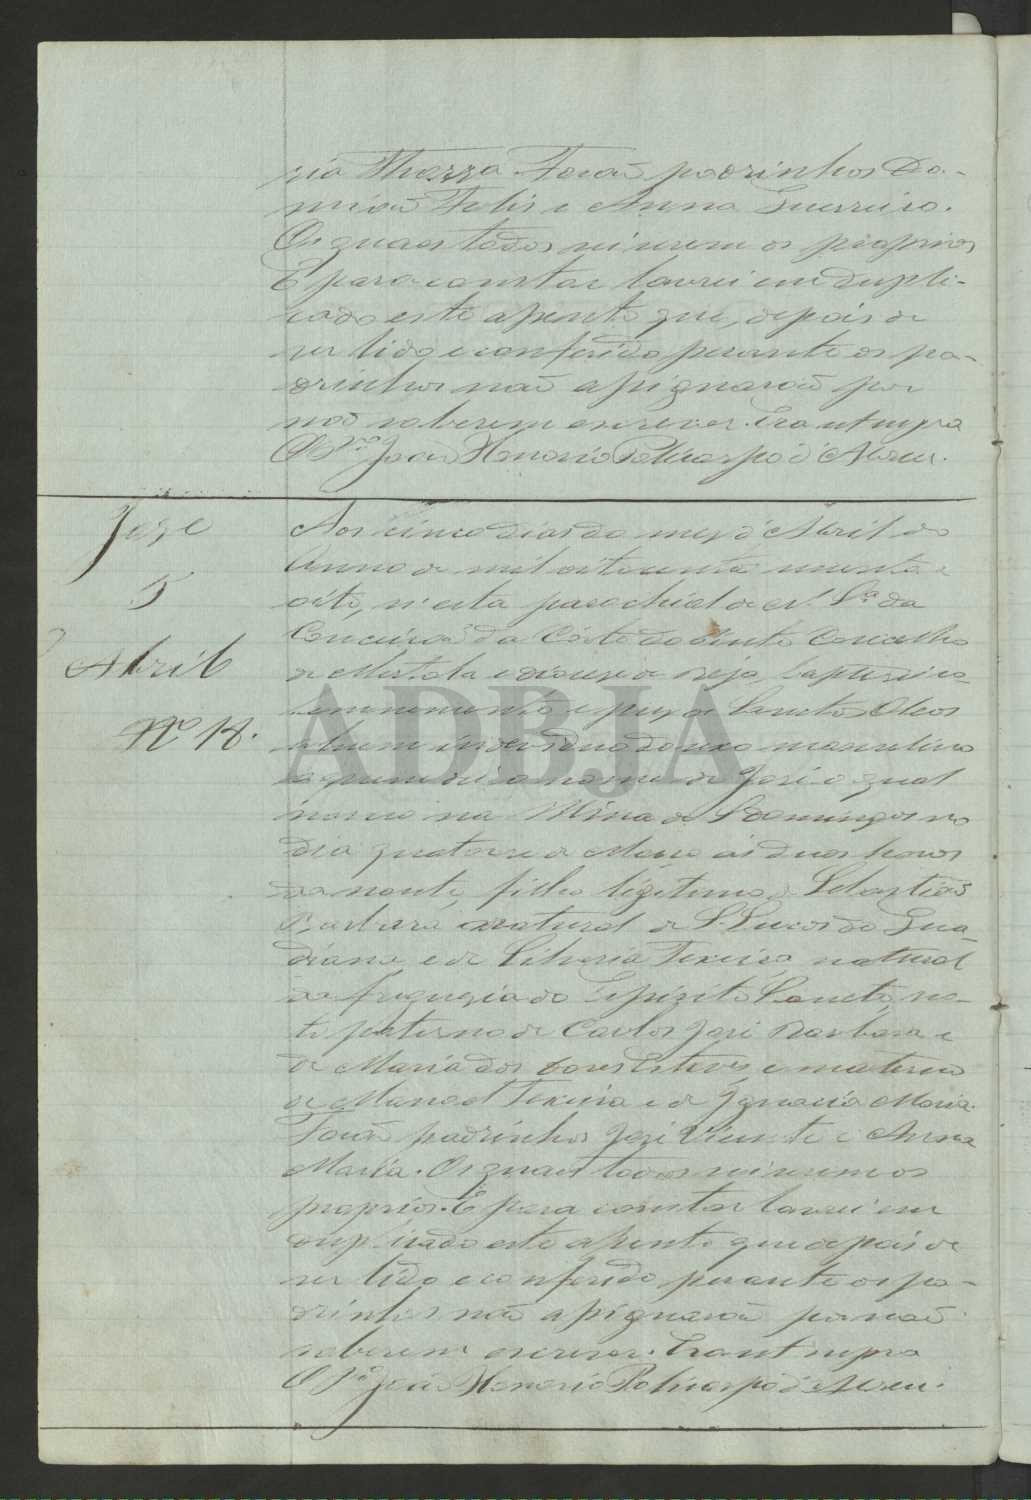 ria Thereza. Forão padrinhos Da-
mião Felis e Anna Guerreiro.
Os quaes todos sei serem os proprios
E para constar lavrei em dupli-
cado este assento que, depois de
ser lido e conferido perante os pa-
drinhos não assignarão por
não saberem escrever. Era ut supra
O P.ro João Honorio Policarpo d'Abreu.
Joze
5
Abril
Nº 18.
Aos cinco dias do mez d'Abril do
Anno de mil oitocentos noventa e
oito, n'esta parochial de N. S.ª da
Conceição da Côrte do Pinto Concelho
de Mertola e diocese de Beja, baptizei so-
lemnemente e puz os Sanctos Oleos
a hum individuo do sexo masculino
a quem dei o nome de José o qual
nasceo na Mina de S Domingos no
dia quatorze de Março ás duas horas
da noute, filho legitimo de Sebastião
Barbara natural de S. Lucar do Gua-
diana e de Liberia Teixeira natural
da freguezia do Espirito Sancto, ne-
to paterno de Carlos José Barbara e
de Maria das Dores Esteves e materno
de Manoel Teixeira e de Ignacia Maria.
Forão padrinhos José Vicente e Anna
Maria. Os quaes todos sei serem os
proprios. E para constar lavrei em
duplicado este assento que depois de
ser lido e conferido perante os pa-
drinhos não assignarão por não
saberem escrever. Era ut supra
O P.ro João Honorio Policarpo d'Abreu.
ADBJA